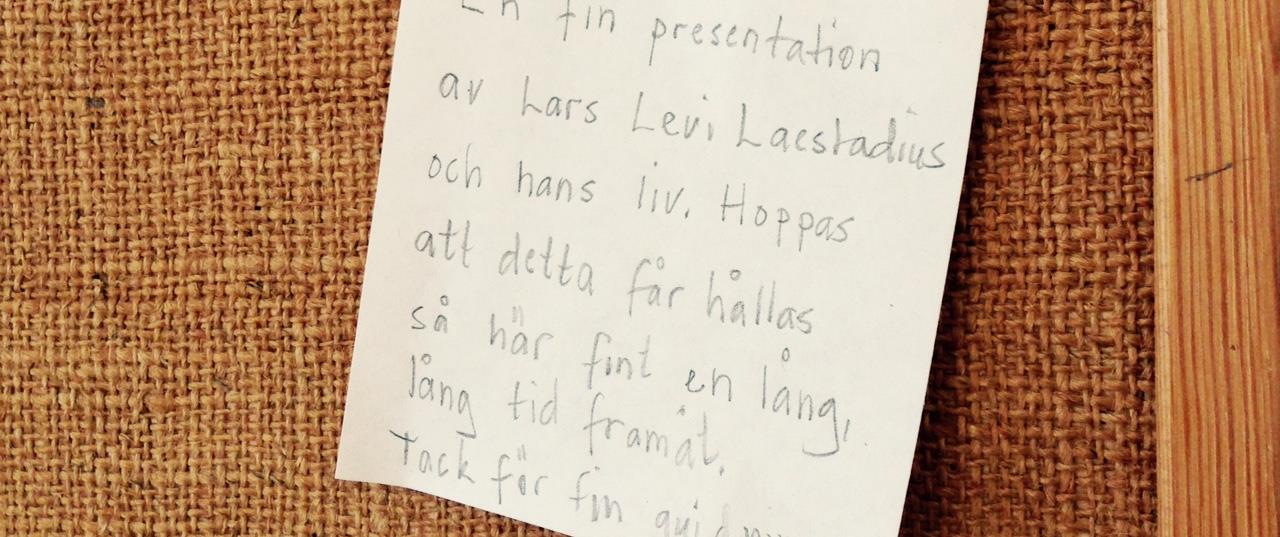 En fin presentation
av Lars Levi Laestadius
och hans liv. Hoppas
att detta får hållas
så här fint en lång,
lång tid framåt.
Tack för fin